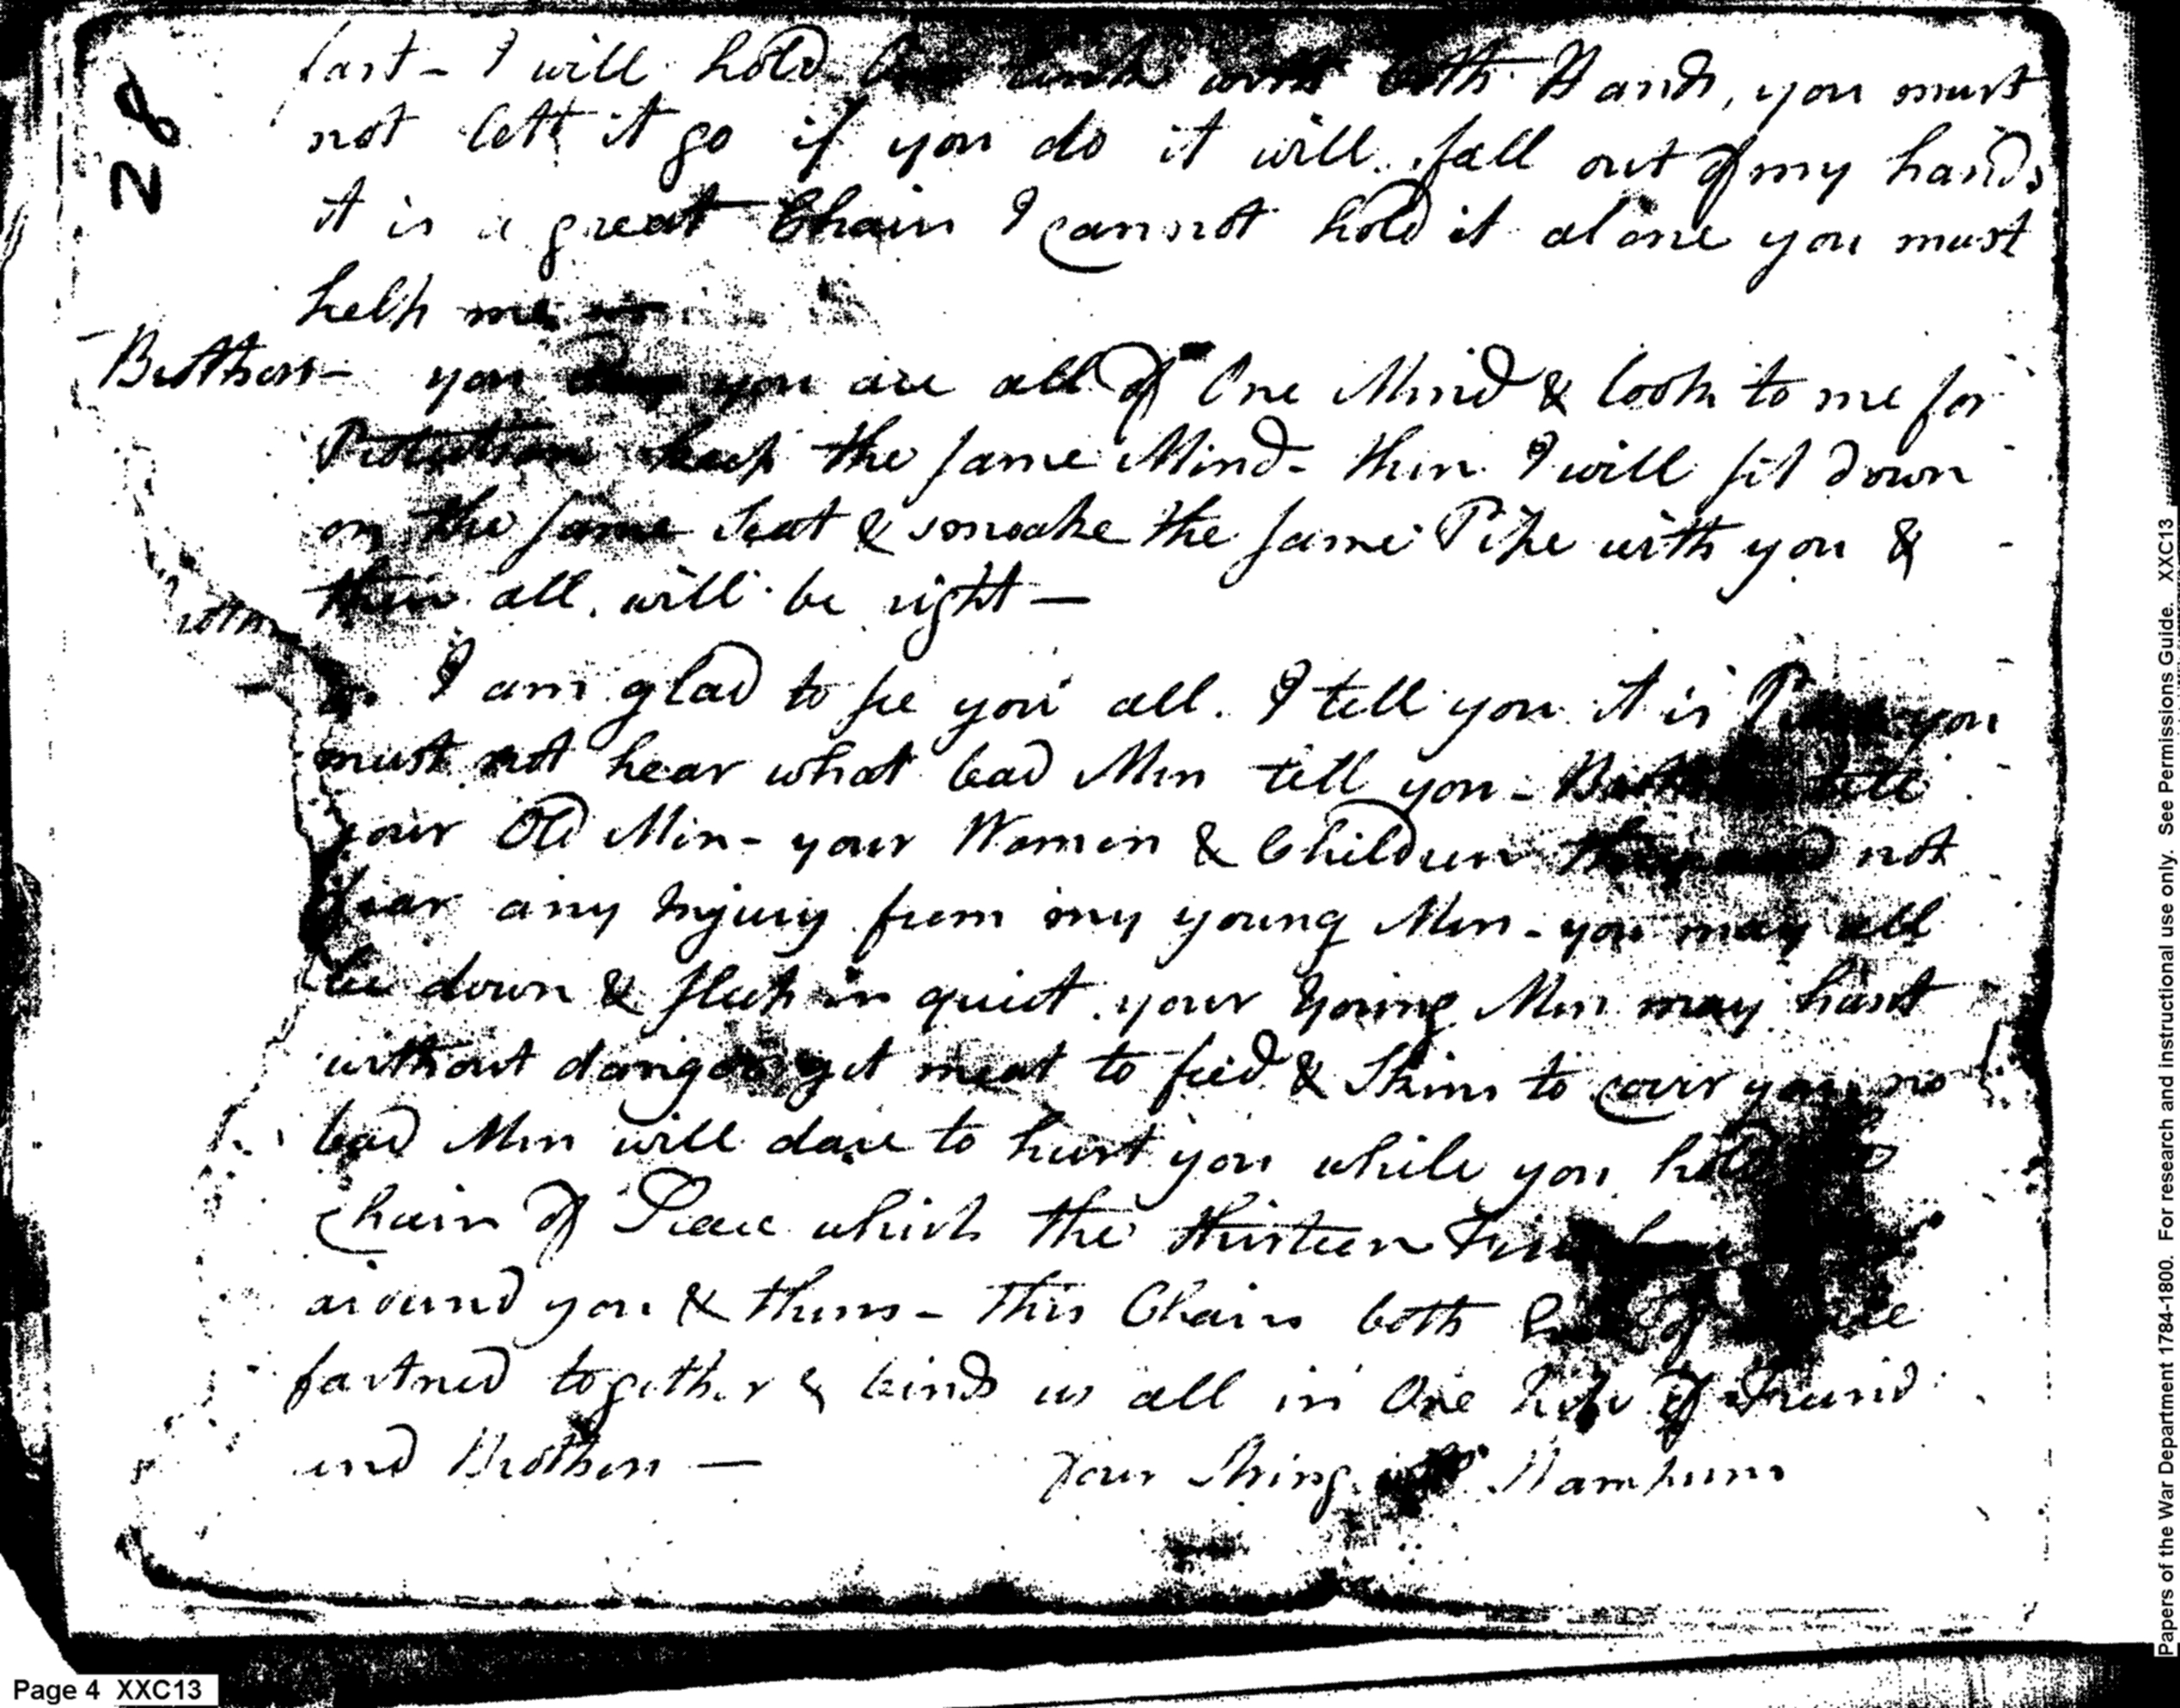 28
fast - I will hold with both Hands, you must
not lett it go if you do it will fall out of my hands
it is a great Chain I cannot hold it alone you must
help me
Brothers - you say you are all of One Mind & look to me for
Protection keep the same Mind - then I will sit down
on the same Seat & smoake the same Pipe with you &
then all will be right —
I am glad to see you all. I tell you it is Peace you
must not hear what bad Men tell you - tell
your Old Men - your Women & Children they need not
fear any Injury from my young Men - you may all
lie down & sleep in quiet your Young Men may hunt
without danger get meat to feed & Skins to cover you no
bad Men will dare to hurt you while you hold
Chain of Peace which the thirteen
around you & them - This Chain both of
fastned together & binds us all in One of Friend
and Brothers — Your String Wampum
Page 4 XXC13
Papers of the War Department 1784-1800. For research and instructional use only. See Permissions Guide. XXC13